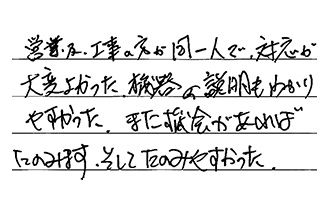 営業及、工事の方が同一人で、対応が
大変よかった、機器の説明もわかり
やすかった。また機会があれば
たのみます、そしてたのみやすかった。